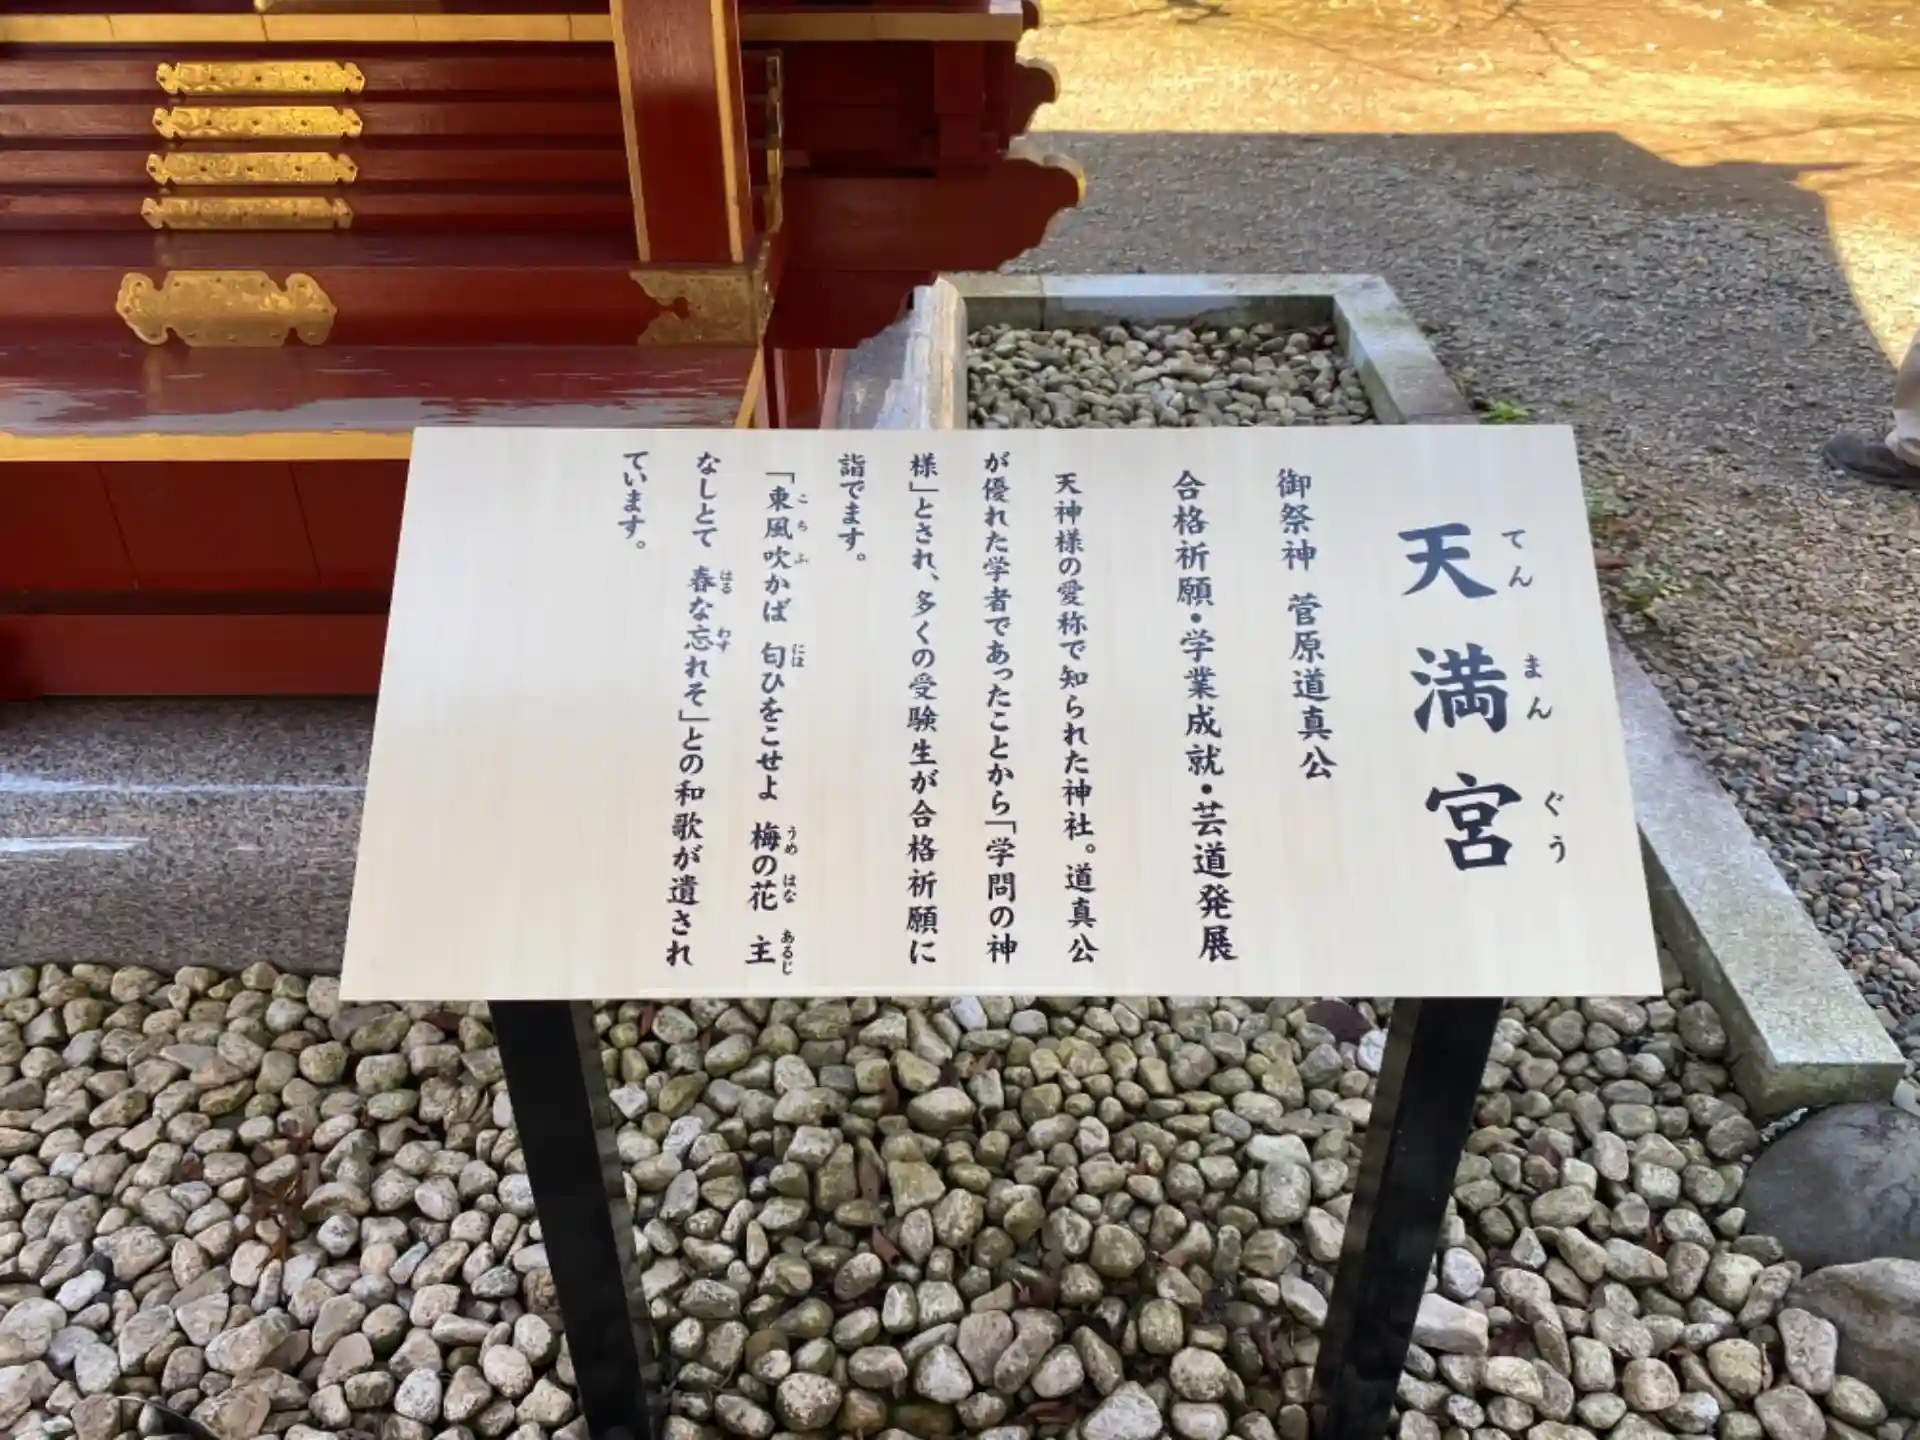 天満宮
てんまんぐう
御祭神 菅原道真公
合格祈願・学業成就・芸道発展
天神様の愛称で知られた神社。道真公
が優れた学者であったことから「学問の神
様」とされ、多くの受験生が合格祈願に
詣でます。
「東風吹かば 匂ひをこせよ 梅の花 主
こちふ には うめ はな あるじ
なしとて 春な忘れそ」との和歌が遺され
はる わす
ています。